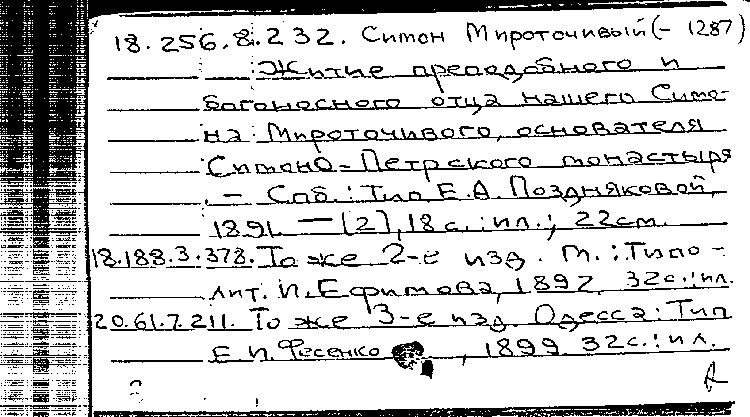 18.256.8.232. Симон Мироточивый (- 1287)
Житие преподобного и
богоносного отца нашего Симо-
на Мироточивого, основателя
Симоно-Петрского монастыря
. – Спб.: Тип Е.А. Поздняковой,
1891. — [2], 18 с.: ил.; 22см.
18.188.3.378. То же 2-е изд. М.: Типо-
лит. И. Ефимова, 1892. 32с.: ил.
20.61.7.211. То же 3-е изд. Одесса: Тип
Е.И. Фесенко , 1899. 32с.: ил.